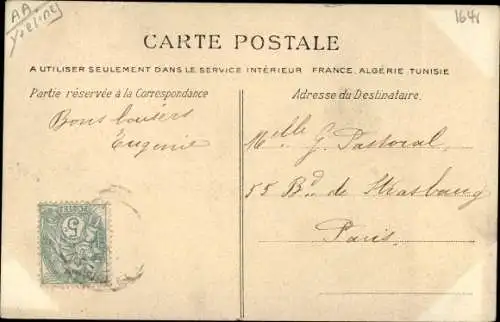 AA
Yvelines
1641
CARTE POSTALE
A UTILISER SEULEMENT DANS LE SERVICE INTÉRIEUR FRANCE, ALGÉRIE, TUNISIE
Partie réservée à la Correspondance
Adresse du Destinataire.
Bons baisers
Eugénie
Melle G. Pastoral
55 Bd de Strasbourg
Paris
5